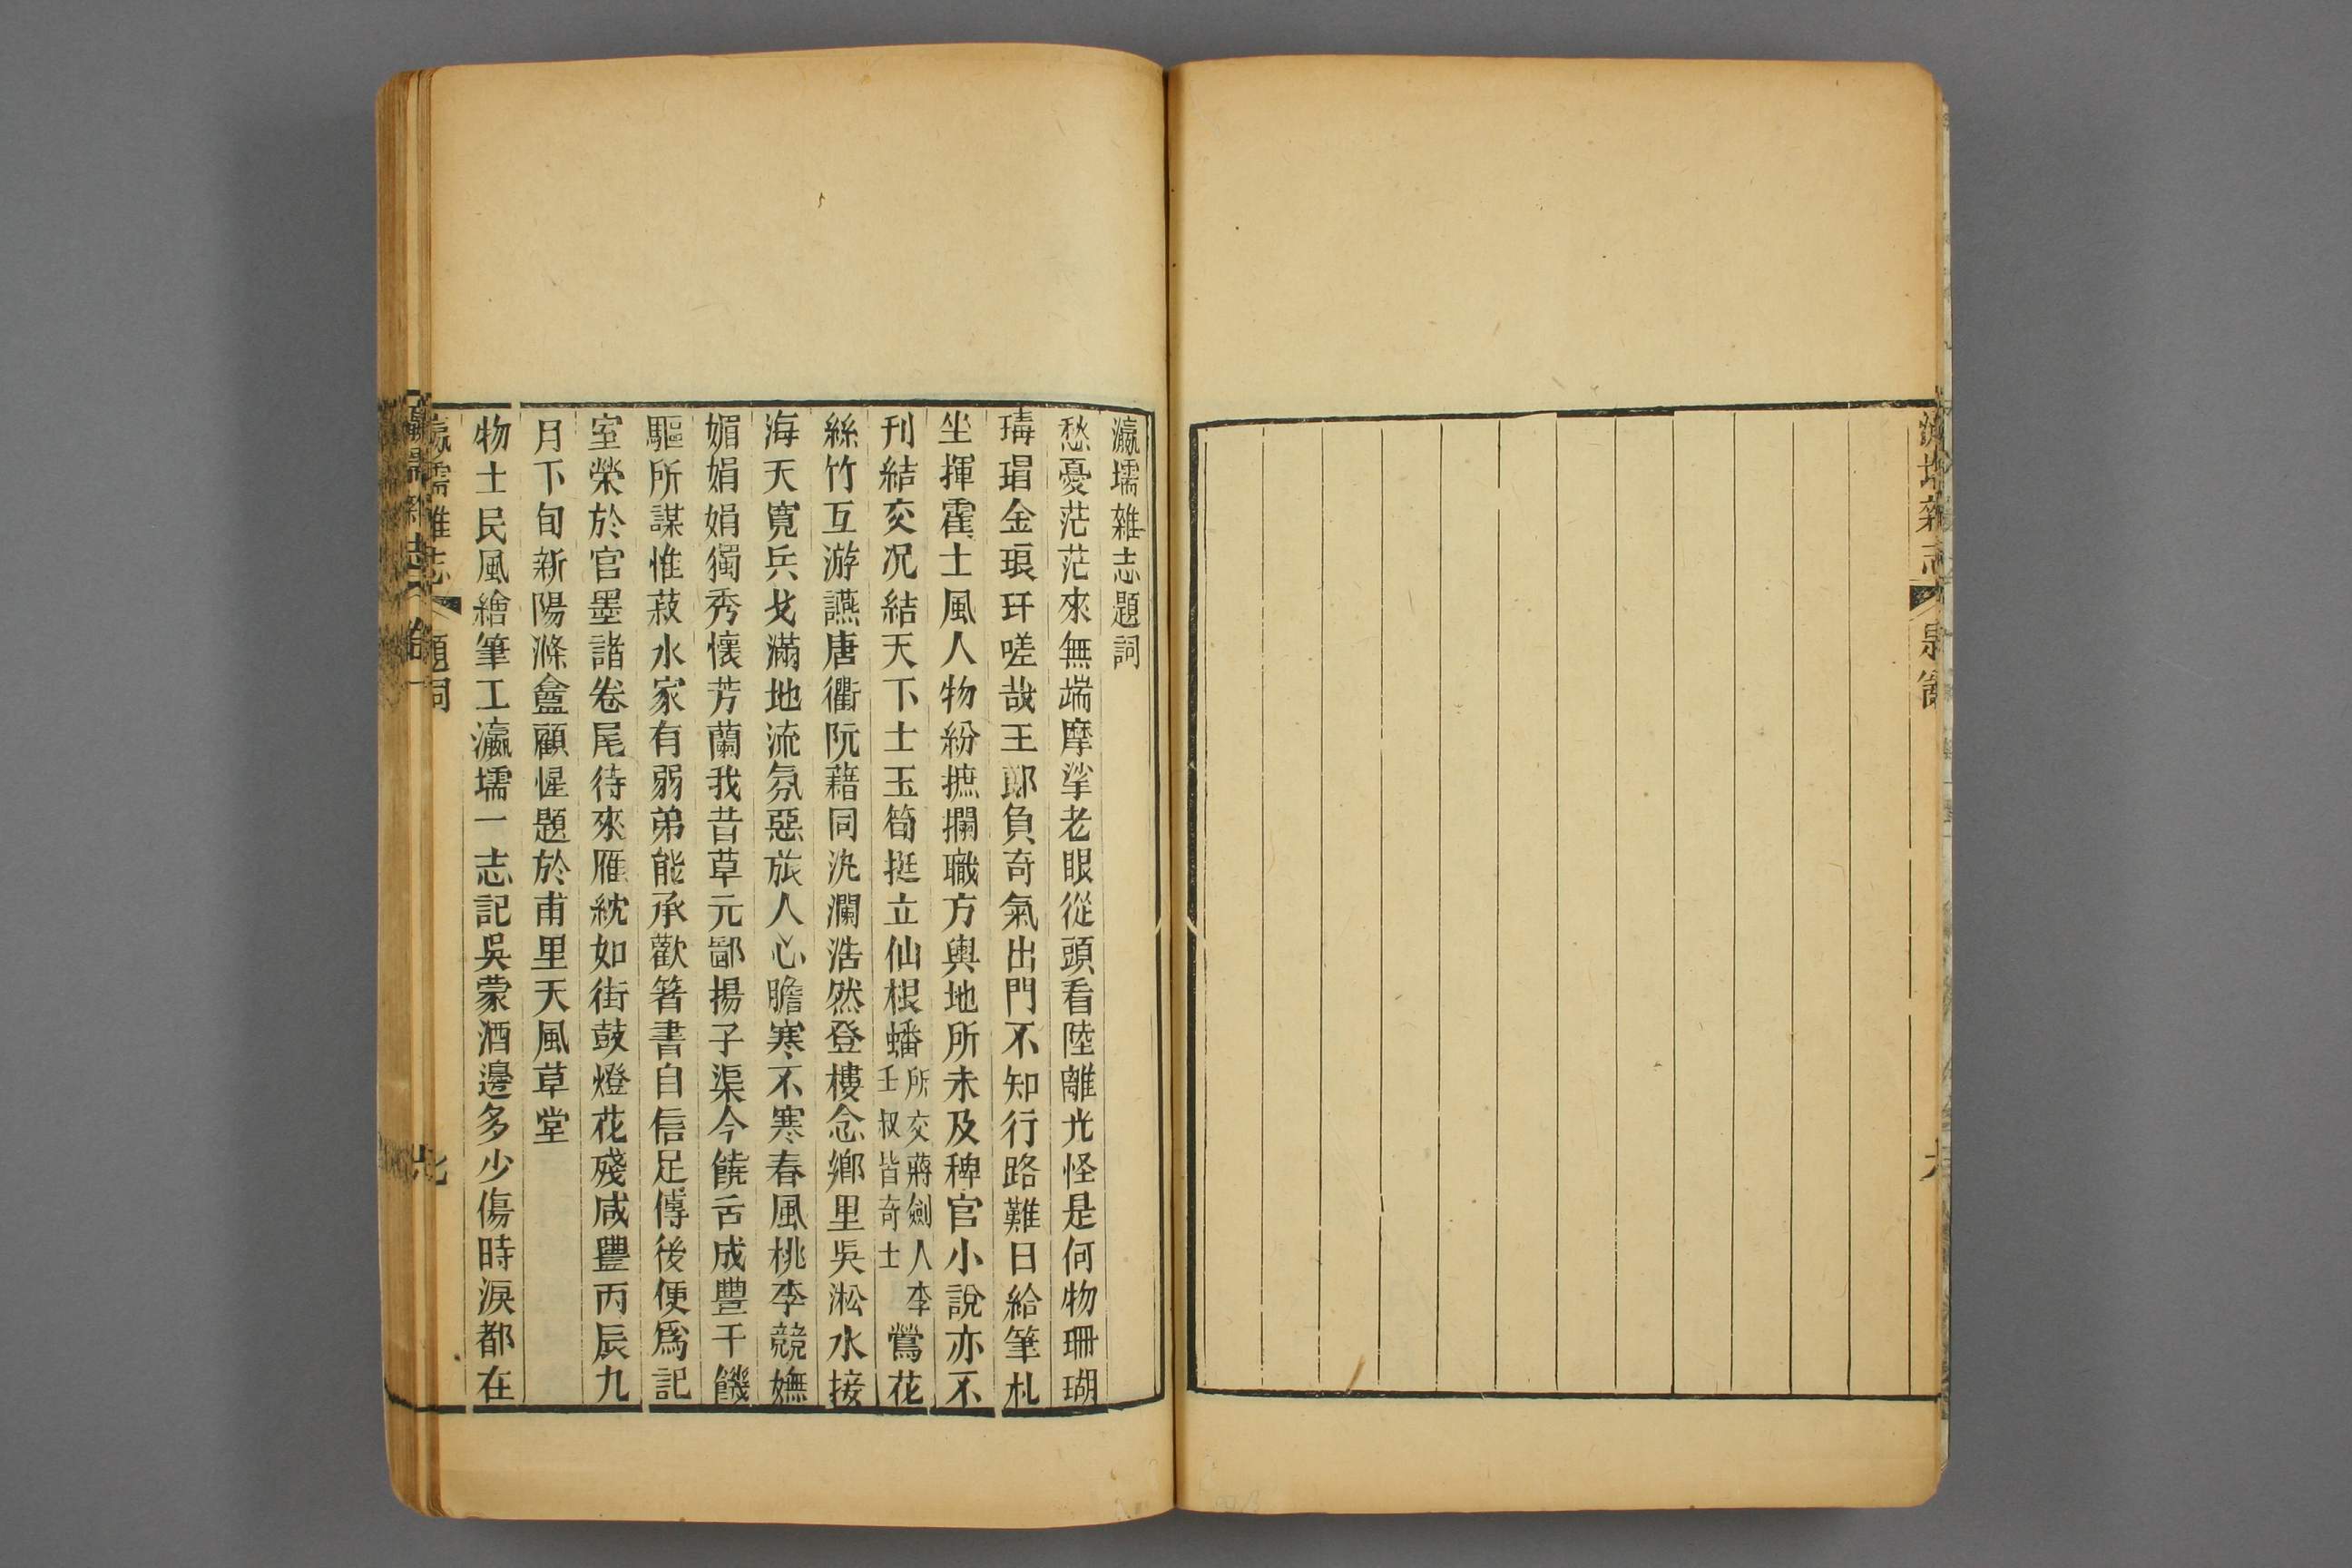 瀛壖雜志
瀛壖雜志題詞
愁憂茫茫來無端摩挲老眼從頭看陸離光怪是何物珊瑚
瑇瑁金琅玕嗟哉王郎負奇氣出門不知行路難日給筆札
坐揮霍土風人物紛摭攔職方輿地所未及稗官小說亦不
刊結交况結天下士玉筍挺立仙根蟠所交蔣劍人李壬叔皆奇士鶯花
絲竹互游讌唐衢阮藉同汍瀾浩然登樓念鄉里吳淞水接
海天寬兵戈滿地流氛惡旅人心膽寒不寒春風桃李競嫵
媚娟娟獨秀懷芳蘭我昔草元鄙揚子渠今饒舌成豐干饑
驅所謀惟菽水家有弱弟能承歡箸書自信足傳後便爲記
室榮於官墨諸卷尾待來雁紞如街鼓燈花殘咸豐丙辰九
月下旬新陽滌盦顧惺題於甫里天風草堂
物土民風繪筆工瀛壖一志記吳蒙酒邊多少傷時淚都在
瀛壖雜志 題詞 七